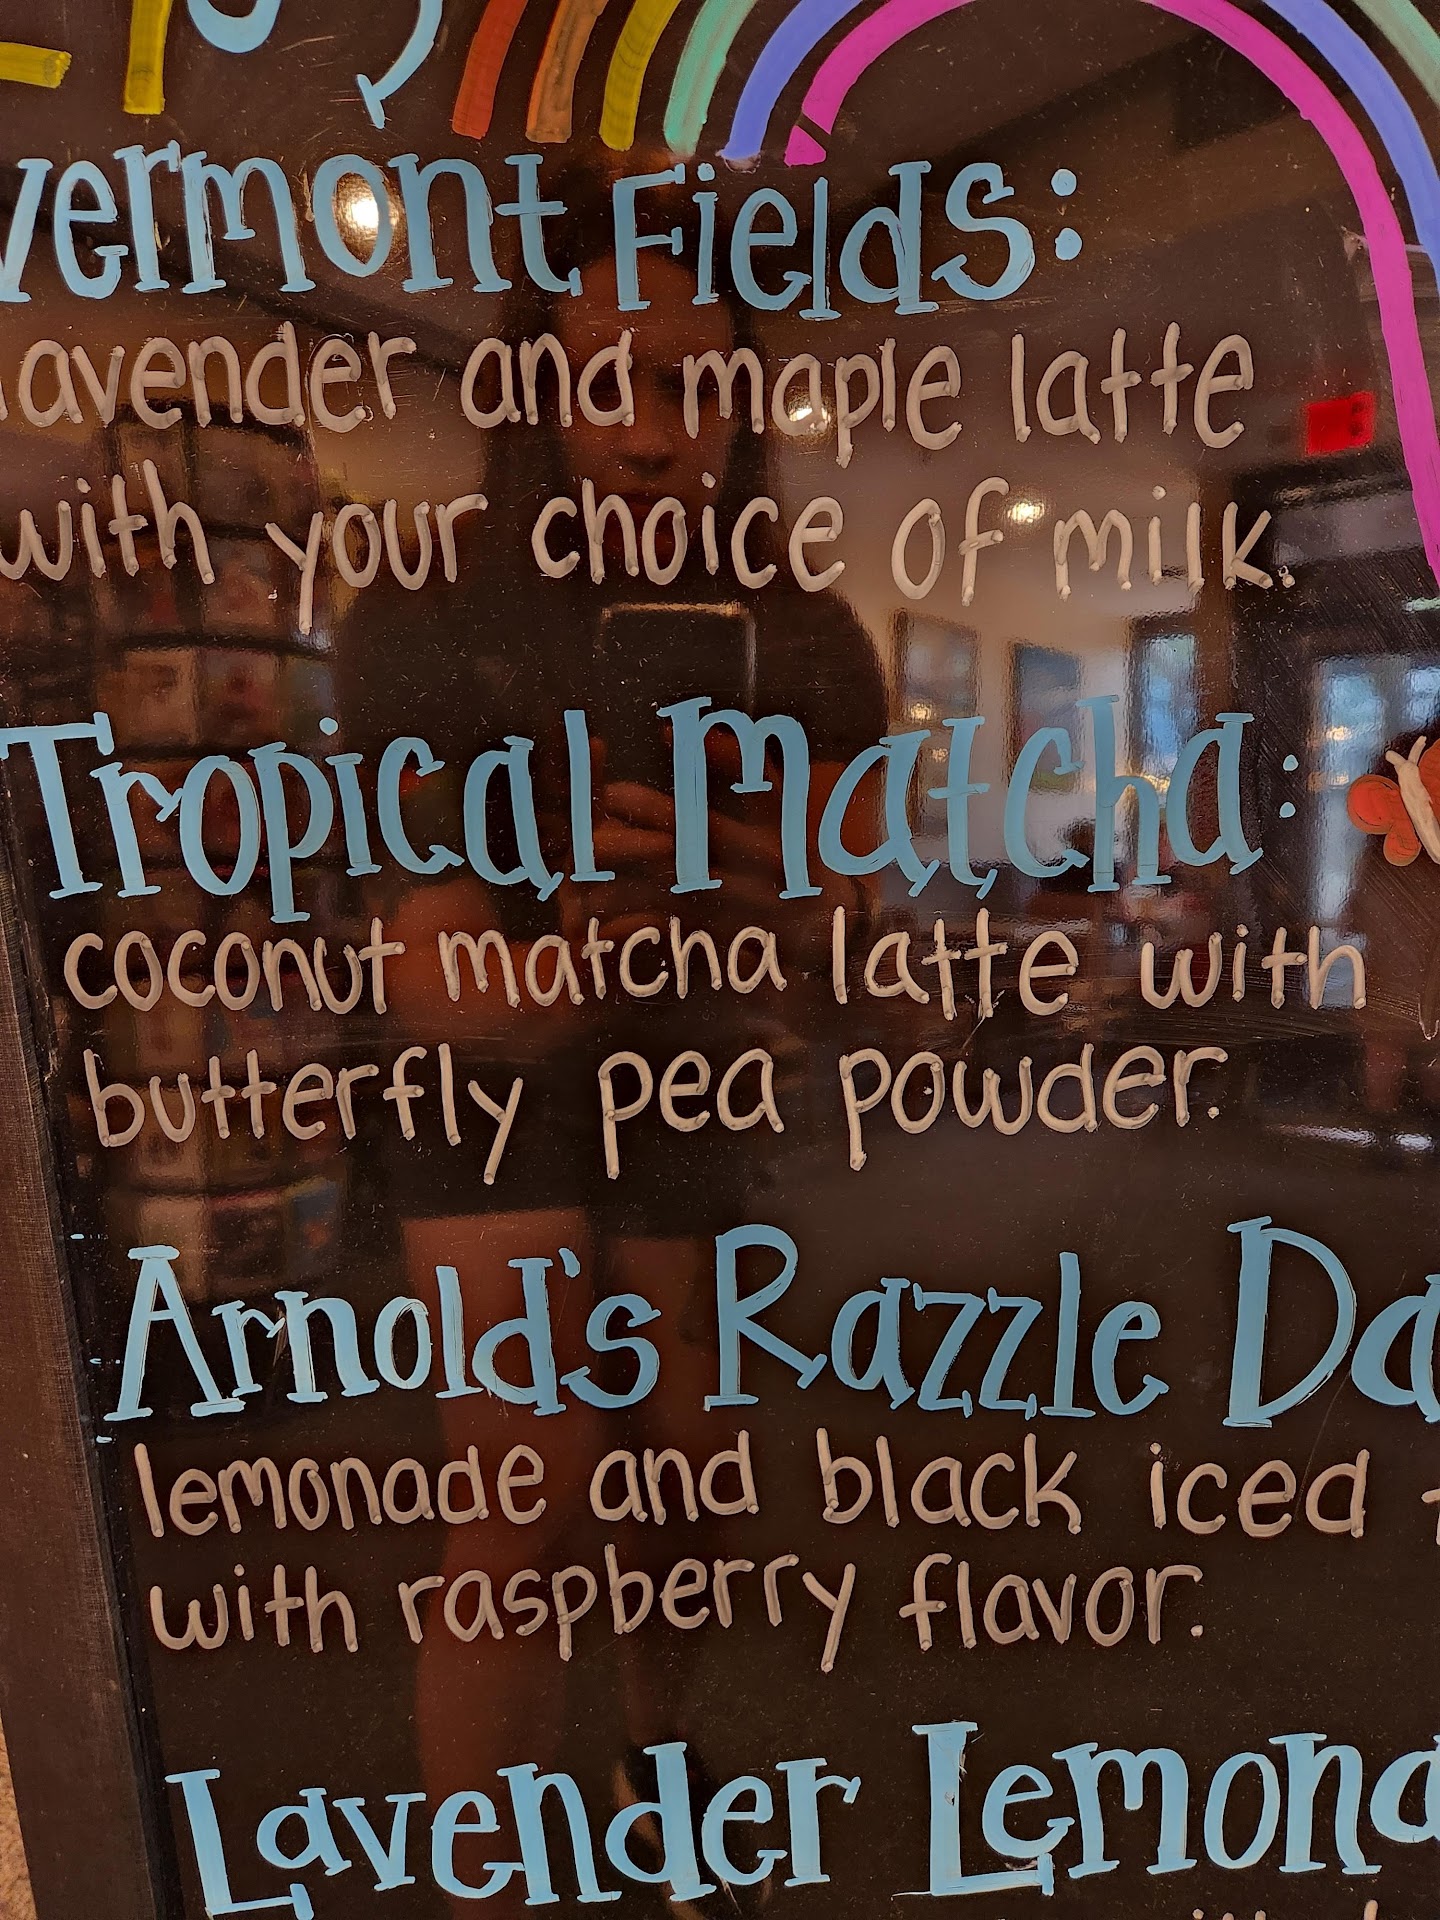 Vermont Fields:
lavender and maple latte
with your choice of milk.
Tropical Matcha:
coconut matcha latte with
butterfly pea powder.
Arnold's Razzle Da
lemonade and black iced
with raspberry flavor.
Lavender Lemona